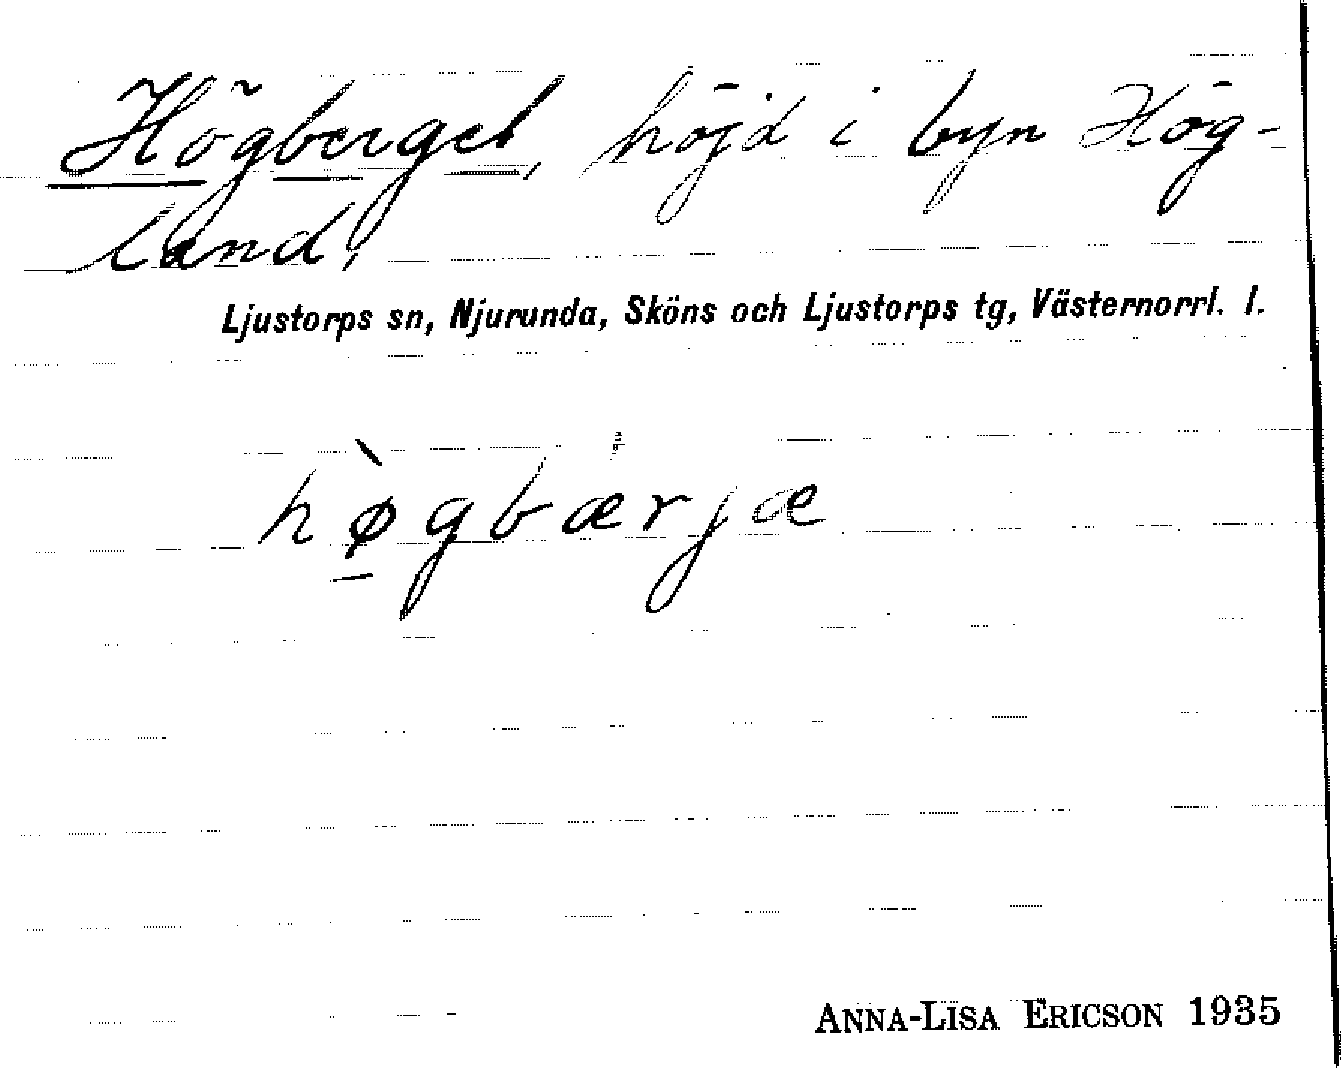 Högberget, höjd i byn Hög-
land,
Ljustorps sn, Njurunda, Sköns och Ljustorps tg, Västernorrl. l.
hø̠̀gbærjæ
ANNA-LISA ERICSON 1935